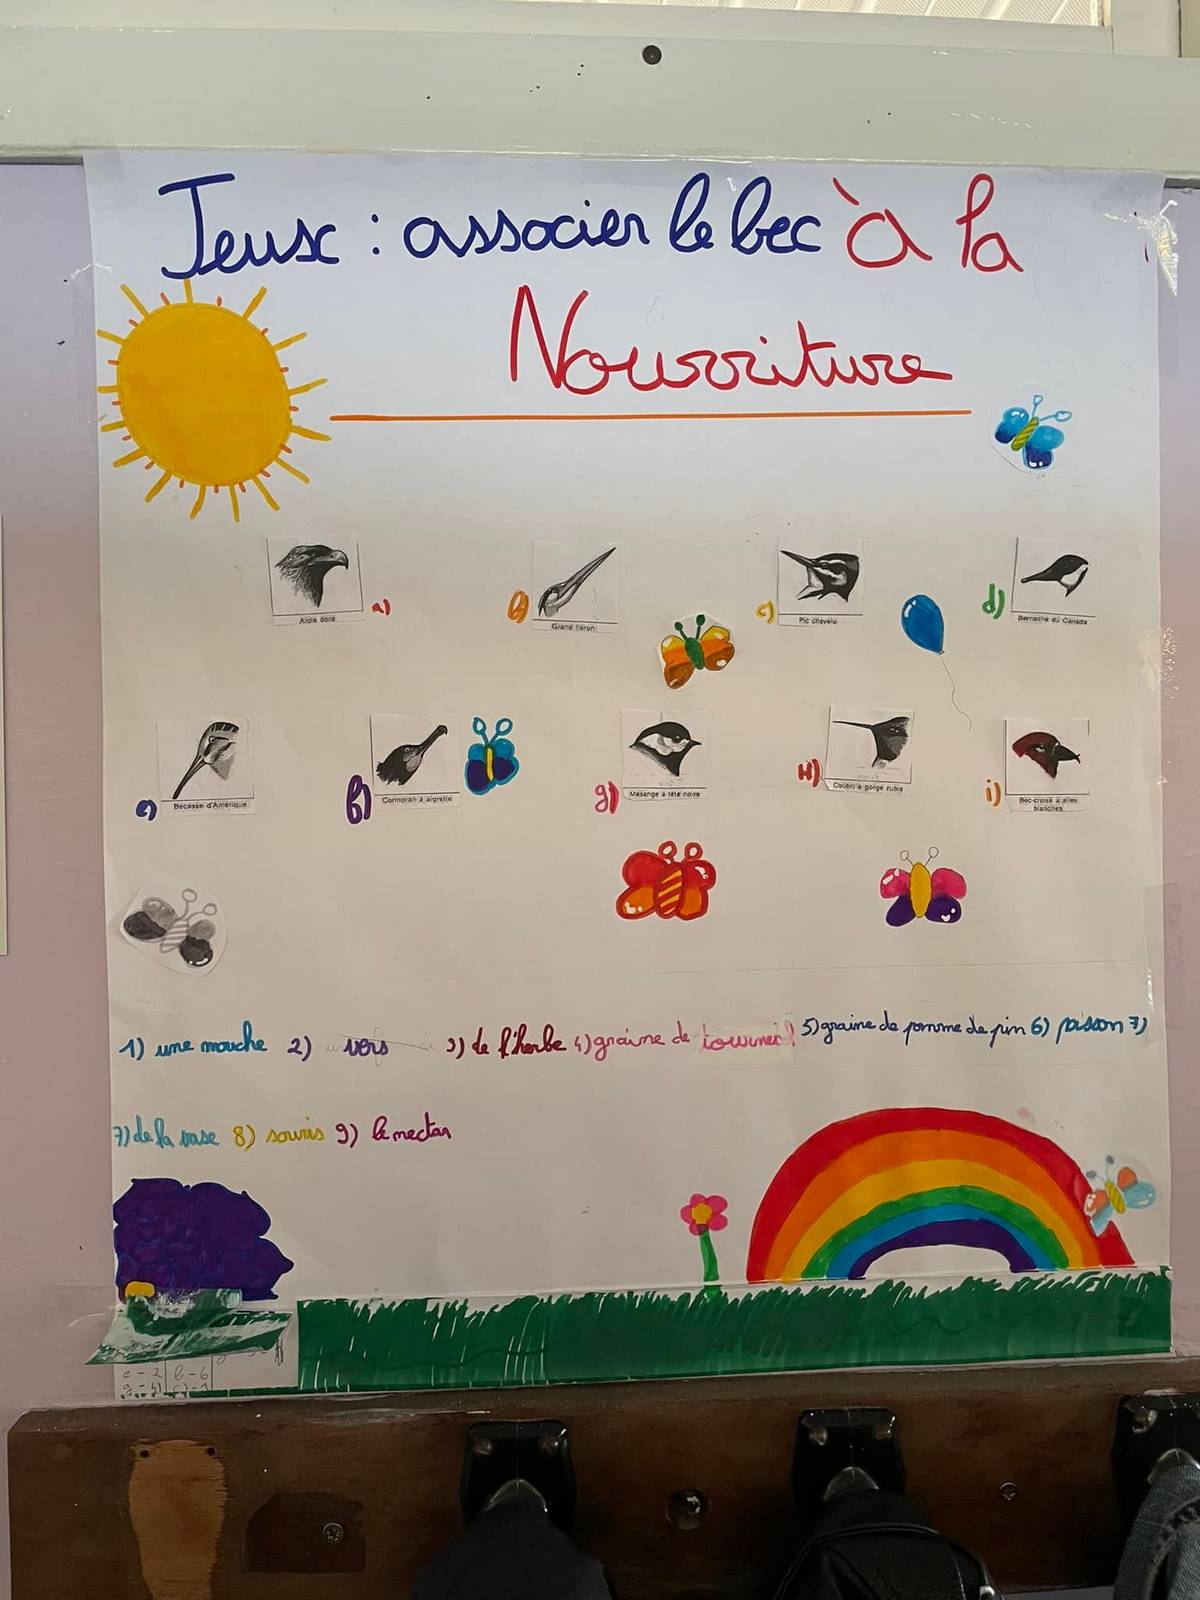 Jeux : associer le bec à la
Nourriture
Aigle doré
a)
Grand héron
Pic chevelu
c)
Bernache du Canada
d)
Bécasse d'Amérique
e)
Cormoran à aigrette
f)
Mésange à tête noire
g)
Colibri à gorge rubis
H)
Bec-croisé à ailes
blanches
i)
1) une mouche 2) vers 3) de l'herbe 4) graine de tournesol 5) graine de pomme de pin 6) poisson 7)
7) de la vase 8) souris 9) le nectar
e - 2 b - 6